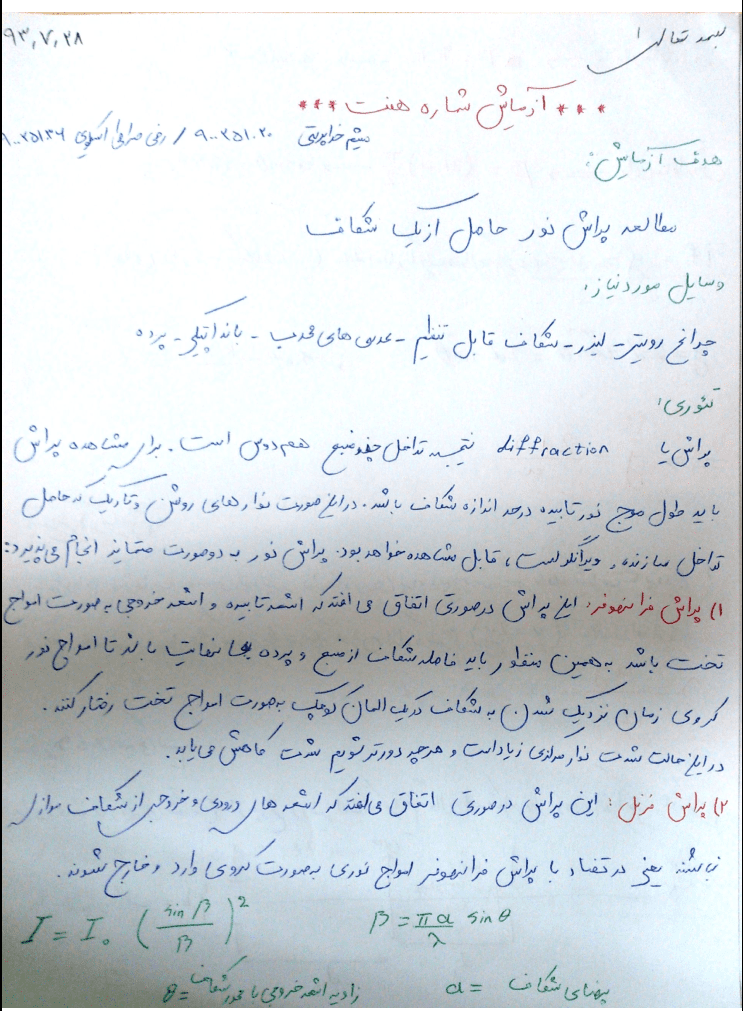 بسمه تعالی
۹۳,۷,۲۸
*** آزمایش شماره هفت ***
میثم خداپرستی ۹۰۰۲۵۱۰۲۰ / رضی ۹۰۰۲۵۱۳۶
هدف آزمایش:
مطالعه پراش نور حاصل از یک شکاف
وسایل مورد نیاز:
چراغ رویتی - لیزر - شکاف قابل تنظیم - عدسی های محدب - باند اپتیکی - پرده
تئوری:
پراش یا diffraction نتیجه تداخل چند منبع همدوس است. برای مشاهده پراش
باید طول موج نور تابیده در حد اندازه شکاف باشد. در این صورت نوار های روشن و تاریک که حاصل
تداخل سازنده و ویرانگر است، قابل مشاهده خواهد بود. پراش نور به دو صورت متمایز انجام می پذیرد:
۱) پراش فرانهوفر: این پراش در صورتی اتفاق می افتد که اشعه تابیده و اشعه خروجی به صورت امواج
تخت باشد به همین منظور باید فاصله شکاف از منبع و پرده بی نهایت باشد تا امواج نور
کروی زمان نزدیک شدن به شکاف در یک المان کوچک به صورت امواج تخت رفتار کنند.
در این حالت شدت نوار مرکزی زیاد است و هر چه دورتر شویم شدت کاهش می یابد.
۲) پراش فرنل: این پراش در صورتی اتفاق می افتد که اشعه های ورودی و خروجی از شکاف موازی
نباشند یعنی در تضاد با پراش فرانهوفر امواج نوری به صورت کروی وارد و خارج شوند.
I = I₀ (sin β / β)² β = πa/λ sin θ
a = پهنای شکاف θ = زاویه اشعه خروجی با محور شکاف